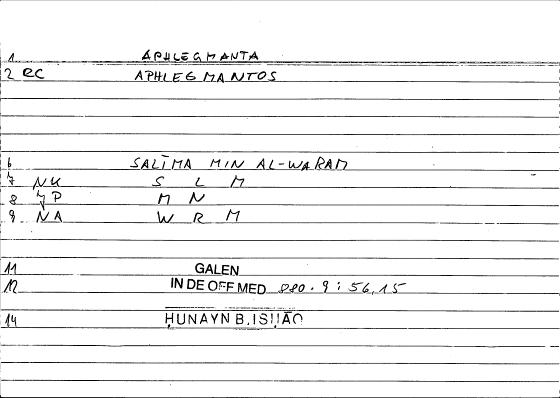 1 APHLEGMANTA
2 RC APHLEGMANTOS
6 SALĪMA MIN AL-WARAM
7 NK S L M
8 JP M N
9 NA W R M
11 GALEN
12 IN DE OFF MED 880.9 : 56,15
14 ḤUNAYN B. ISḤĀQ